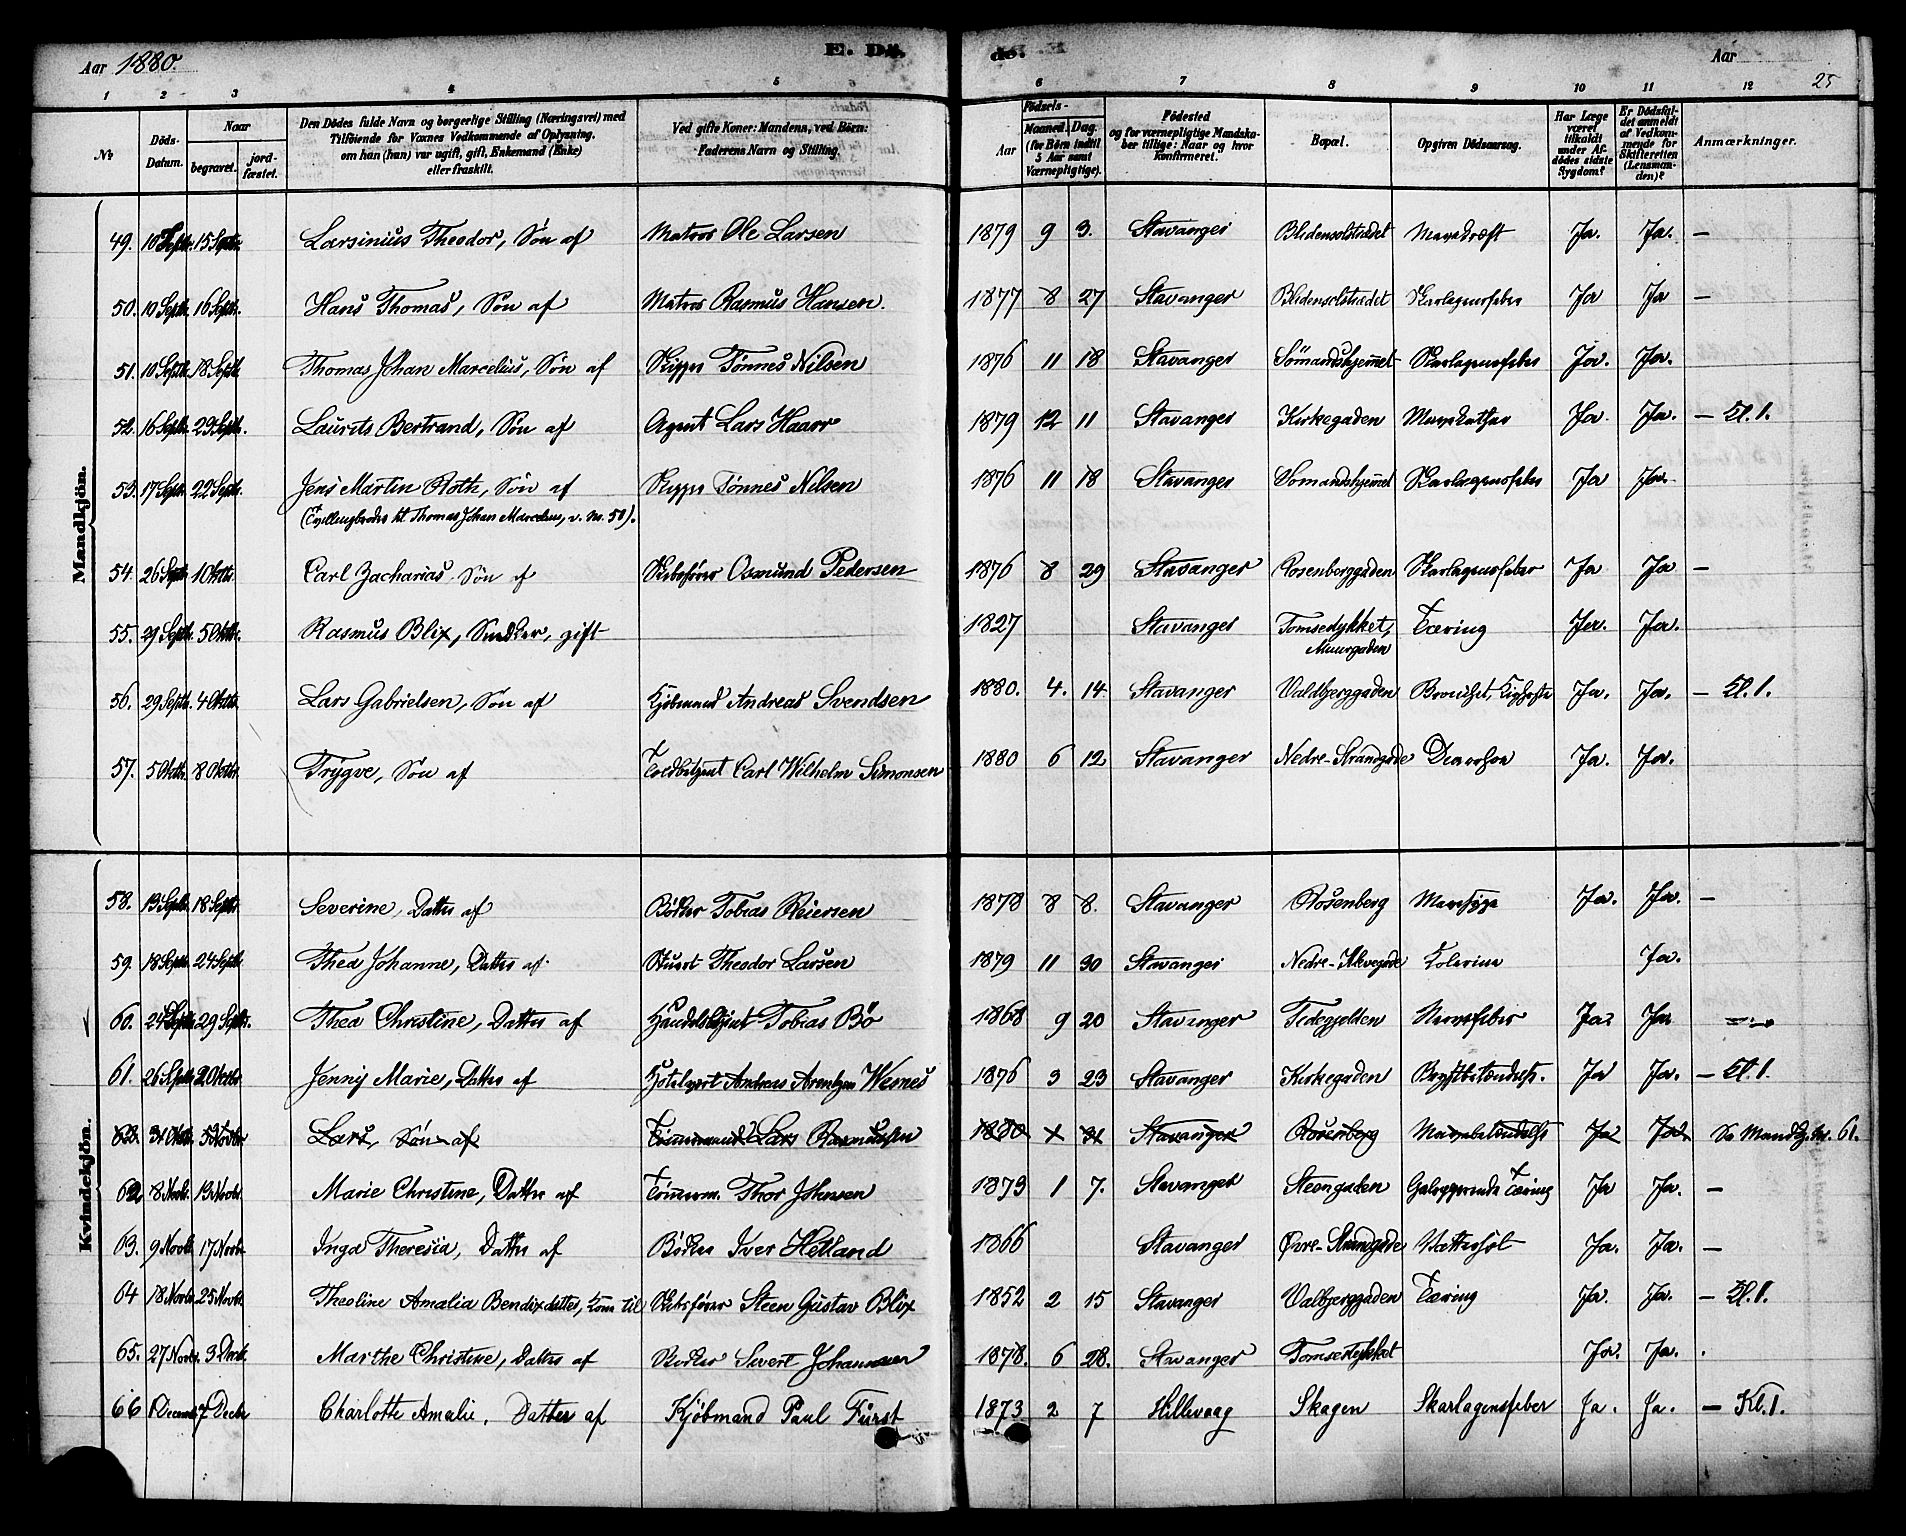 Aar 1880.
E. Dö
de.
Aar
25
1 2 3 4 5 6 7 8 9 10 11 12
№
Döds-Datum.
Naar
begravet.
jord-fæstet.
Den Dødes fulde Navn og borgerlige Stilling (Næringsvei) med
Tilföiende for Voxnes Vedkommende af Oplysning,
om han (hun) var ugift, gift, Enkemand (Enke)
eller fraskilt.
Ved gifte Koner: Mandens, ved Börn:
Faderens Navn og Stilling.
Födsels-
Aar
Maaned. Dag.
(for Börn indtil
5 Aar samt
Værnepligtige).
Födested
og for værnepligtige Mandska-
ber tillige: Naar og hvor
konfirmeret.
Bopæl.
Opgiven Dödsaarsag.
Har Læge
været
tilkaldt
under Af-
dödes sidste
Sygdom?
Er Dödsfal-
det anmeldt
af Vedkom-
mende for
Skifteretten
(Lensman-
den)?
Anmærkninger.
Mandkjön.
49. 10 Septb. 15 Septb. Larsinius Theodor, Søn af Matros Ole Larsen 1879 9 3. Stavanger Blidensolstrædet Ja. Ja. —
50. 10 Septb. 16 Septb. Hans Thomas, Søn af Matros Rasmus Hansen. 1877 8 27 Stavanger Blidensolstrædet Skarlagensfeber Ja Ja —
51. 10 Septb. 18 Septb. Thomas Johan Marcelius, Søn af Skipper Tønnes Nilsen 1876 11 18 Stavanger Sømandshjemmet Skarlagensfeber Ja. Ja.
52. 16 Septb. 23 Septb. Laurits Bertrand, Søn af Agent Lars Haarr 1879 12 11 Stavanger Kirkegaden Mavekathar Ja Ja. — Kl. 1.
53. 17 Septb. 22 Septb. Jens Martin Roth, Søn af Skipper Tønnes Nilsen 1876 11 18 Stavanger Sømandshjemmet Skarlagensfeber Ja Ja.
(Tvillingbroder til Thomas Johan Marcelius, v. No. 51).
54. 26 Septb. 1 Oktb. Carl Zacharias Søn af Skibsfører Osmund Pedersen 1876 8 29 Stavanger Rosenberggaden Skarlagensfeber Ja Ja —
55. 29 Septb. 5 Oktb. Rasmus Blix, Snedker, gift 1827 Stavanger Tomsestykket, Tæring Ja. Ja.
Muurgaden
56. 29 Septb. 4 Oktb. Lars Gabrielsen, Søn af Kjøbmand Andreas Svendsen 1880. 4. 14 Stavanger Valdbjerggaden Bronchit, Kighoste Ja. Ja. — Kl. 1.
57. 5 Oktb. 8 Oktb. Trygve, Søn af Toldbetjent Carl Wilhelm Simonsen 1880 6 12 Stavanger Nedre-Strandgade Diarrhoe Ja. Ja.
Kvindekjön.
58. 13 Septb. 18 Septb. Severine, Datter af Bødker Tobias Reiersen 1878 8 8. Stavanger Rosenberg Mavesyge Ja. Ja. —
59. 18 Septb. 24 Septb. Thea Johanne, Datter af Theodor Larsen 1879 11 30 Stavanger Nedre-Klevegade Kolerine Ja.
60. 24 Septb. 29 Septb. Thea Christine, Datter af Handelsbetjent Tobias Bø 1868 9 20 Stavanger Tidegjelden Nervefeber Ja. Ja
61. 26 Septb. 2 Oktbr Jenny Marie, Datter af Hotelvert Andreas Arentzen Wesnes 1876 3 23 Stavanger Kirkegaden Brystbetændelse. Ja Ja. — Kl. 1.
62. 31 Oktb. 5 Novbr Lars, Søn af Tømmermand Lars Rasmussen 1880 31 Stavanger Rosenberg Mavebetændelse Ja Ja. Se Mandkj. No. 61.
62 8 Novb. 13 Novbr Marie Christine, Datter af Tømmerm. Thor Johnsen 1879 1 7. Stavanger Steengaden Galopperende Tæring Ja Ja. —
63. 9 Novb. 17 Novbr Inga Theresia, Datter af Bødker Iver Hetland 1866 Stavanger Øvre-Strandgade Vattersot Ja. Ja. —
64 18 Novb. 25 Novbr. Theoline Amalia Bendixdatter, Kone til Skibsfører Steen Gustav Blix 1852 2 15 Stavanger Valbjerggaden Tæring Ja. Ja. — Kl. 1.
65. 27 Novbr. 3 Decb. Marthe Christine, Datter af Sivert Johannesen 1878. 6 28. Stavanger Tomsestykket Ja. Ja.
66 1 Decemb 7 Decbr Charlotte Amalie. Datter af Kjøbmand Paul Fürst 1873 2 7 Hillevaag Skagen Skarlagensfeber Ja. Ja. — Kl. 1.